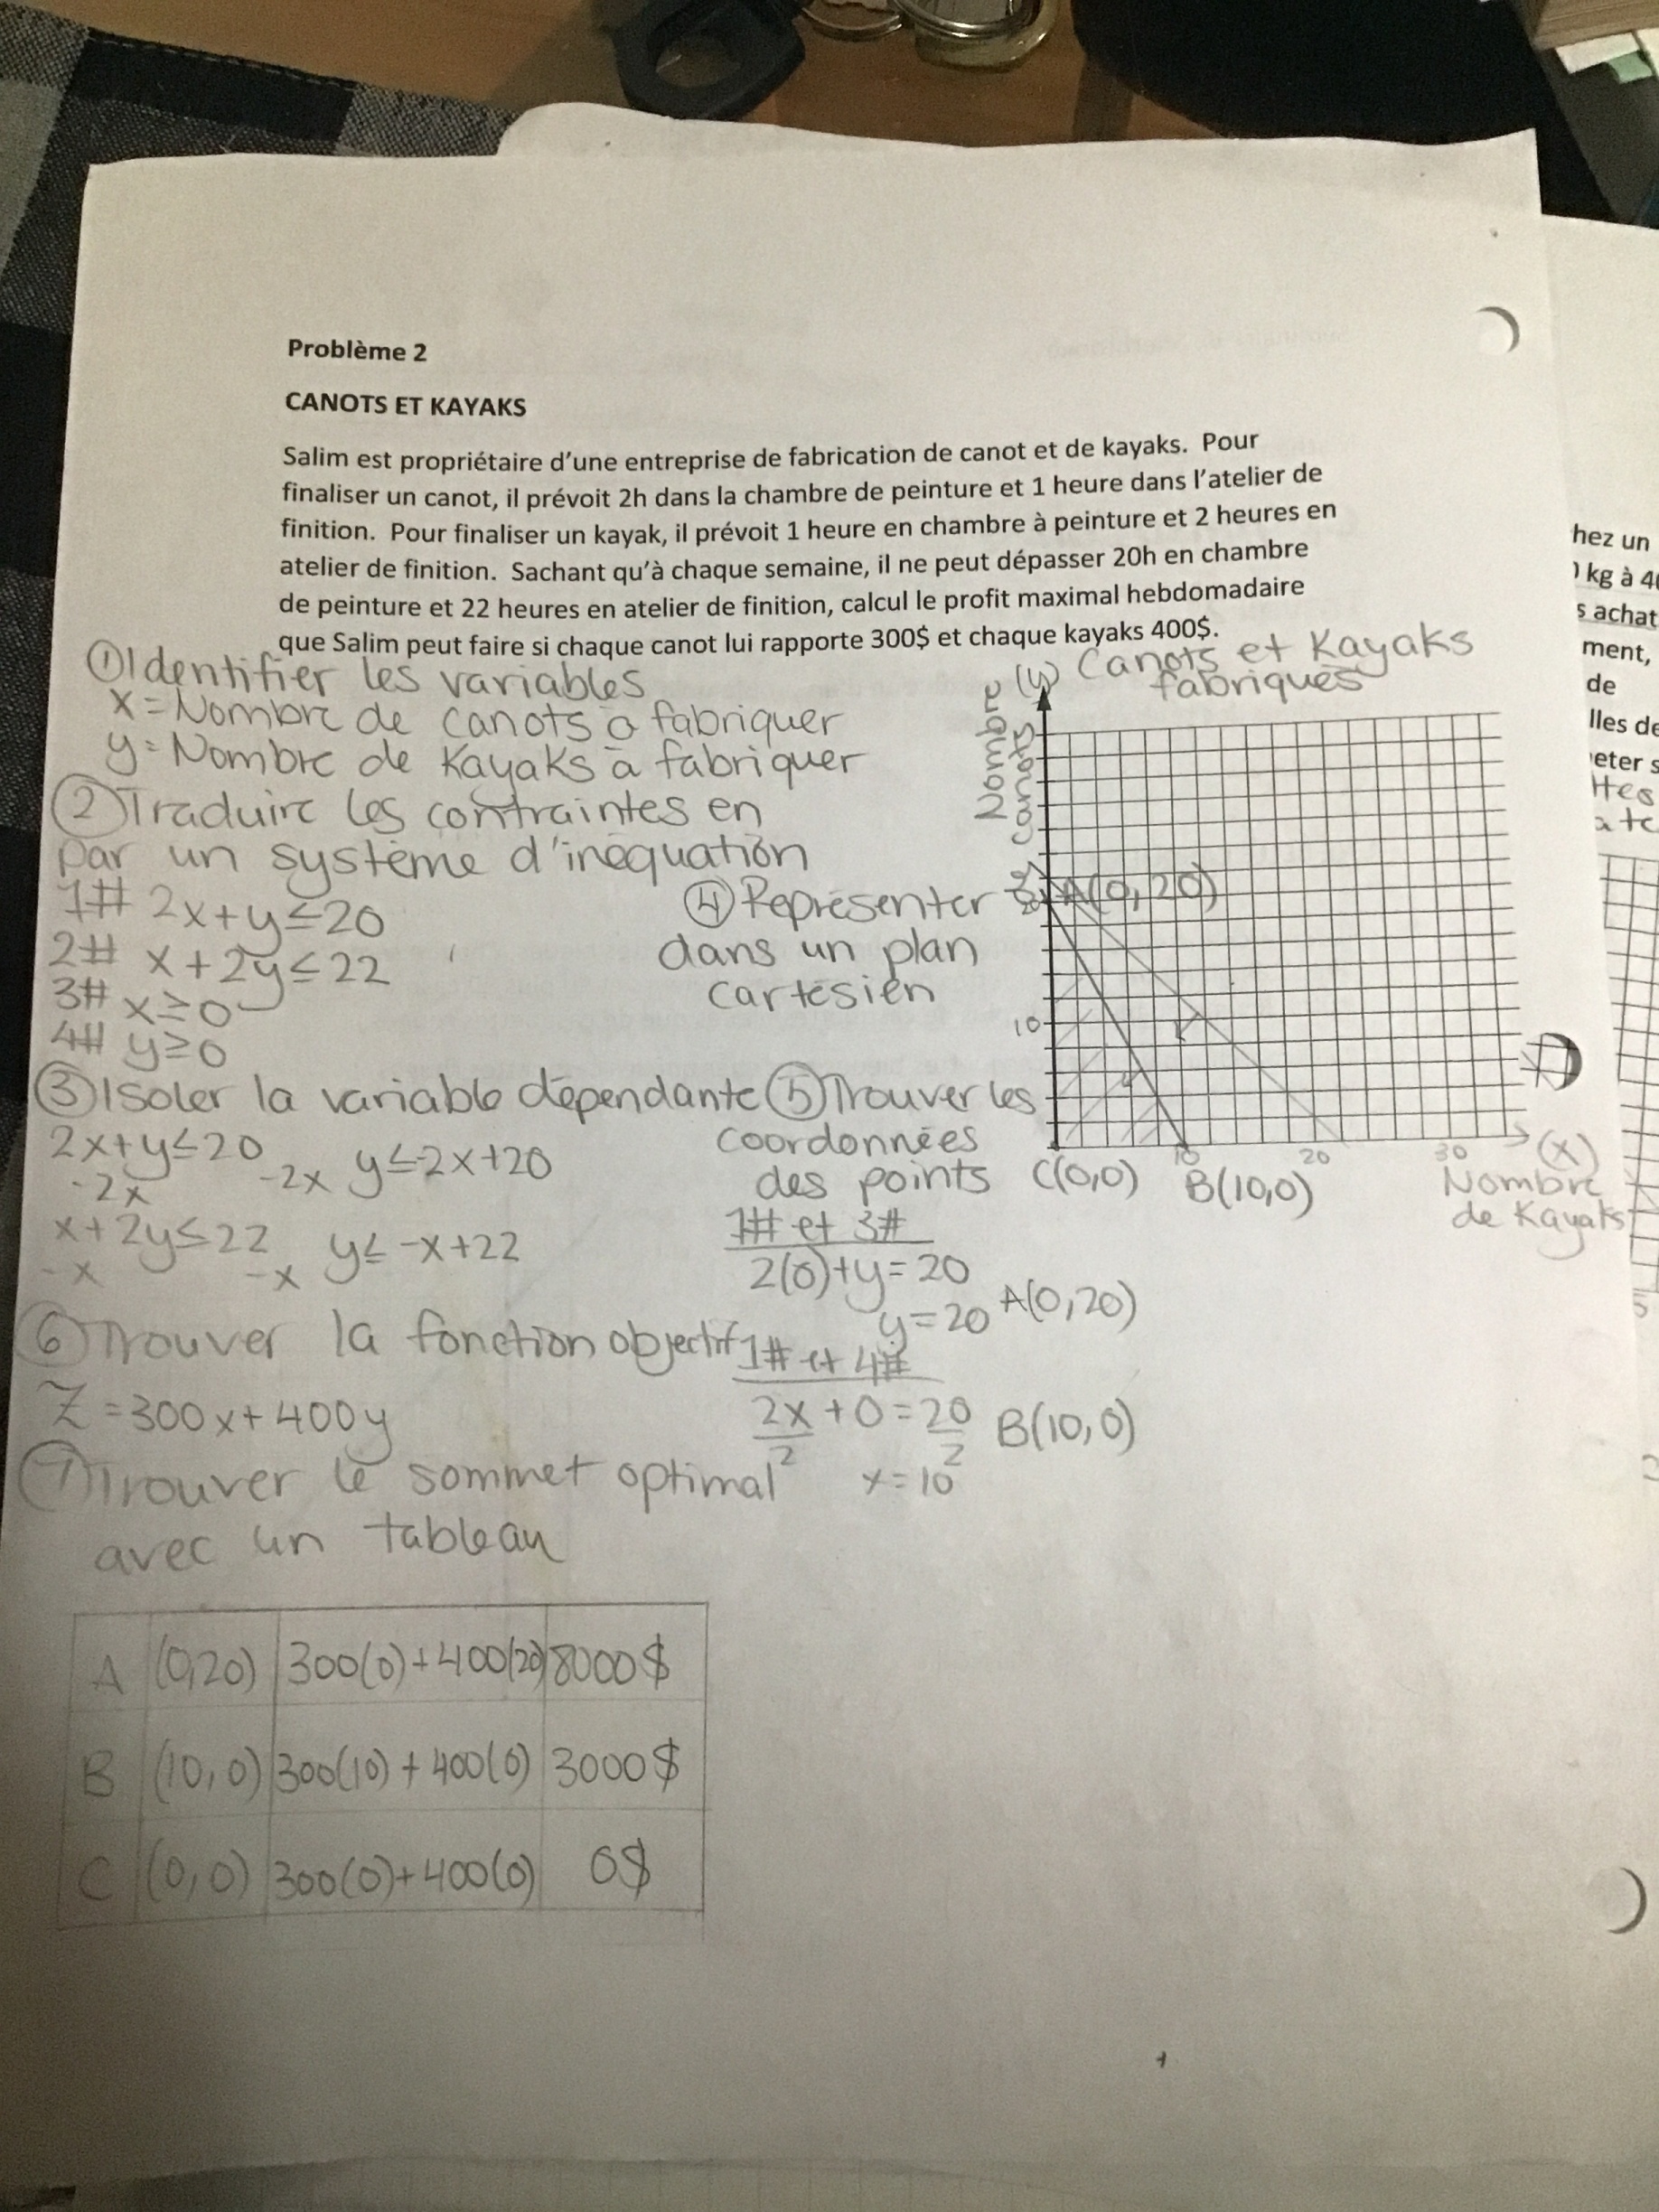 Problème 2
CANOTS ET KAYAKS
Salim est propriétaire d'une entreprise de fabrication de canot et de kayaks. Pour
finaliser un canot, il prévoit 2h dans la chambre de peinture et 1 heure dans l'atelier de
finition. Pour finaliser un kayak, il prévoit 1 heure en chambre à peinture et 2 heures en
atelier de finition. Sachant qu'à chaque semaine, il ne peut dépasser 20h en chambre
de peinture et 22 heures en atelier de finition, calcul le profit maximal hebdomadaire
que Salim peut faire si chaque canot lui rapporte 300$ et chaque kayaks 400$.
① Identifier les variables
x = Nombre de canots à fabriquer
y = Nombre de Kayaks à fabriquer
② Traduire les contraintes en
par un système d'inéquation
1# 2x+y≤20
2# x+2y≤22
3# x≥0
4# y≥0
③ Isoler la variable dépendante
2x+y≤20
-2x -2x y≤-2x+20
x+2y≤22
-x -x y≤-x+22
④ Représenter
dans un plan
cartésien
(y) Canots et Kayaks
fabriqués
Nombre
canots
A(0,20)
10
C(0,0) B(10,0)
10 20 30 (x)
Nombre
de Kayaks
⑤ Trouver les
coordonnées
des points
1# et 3#
2(0)+y=20
y=20 A(0,20)
1# et 4#
2x+0=20
2 2
x=10 B(10,0)
⑥ Trouver la fonction objectif
Z=300x+400y
⑦ Trouver le sommet optimal
avec un tableau
A (0,20) 300(0)+400(20) 8000$
B (10,0) 300(10)+400(0) 3000$
C (0,0) 300(0)+400(0) 0$
hez un
kg à 40
s achat
ment,
de
lles de
eter s